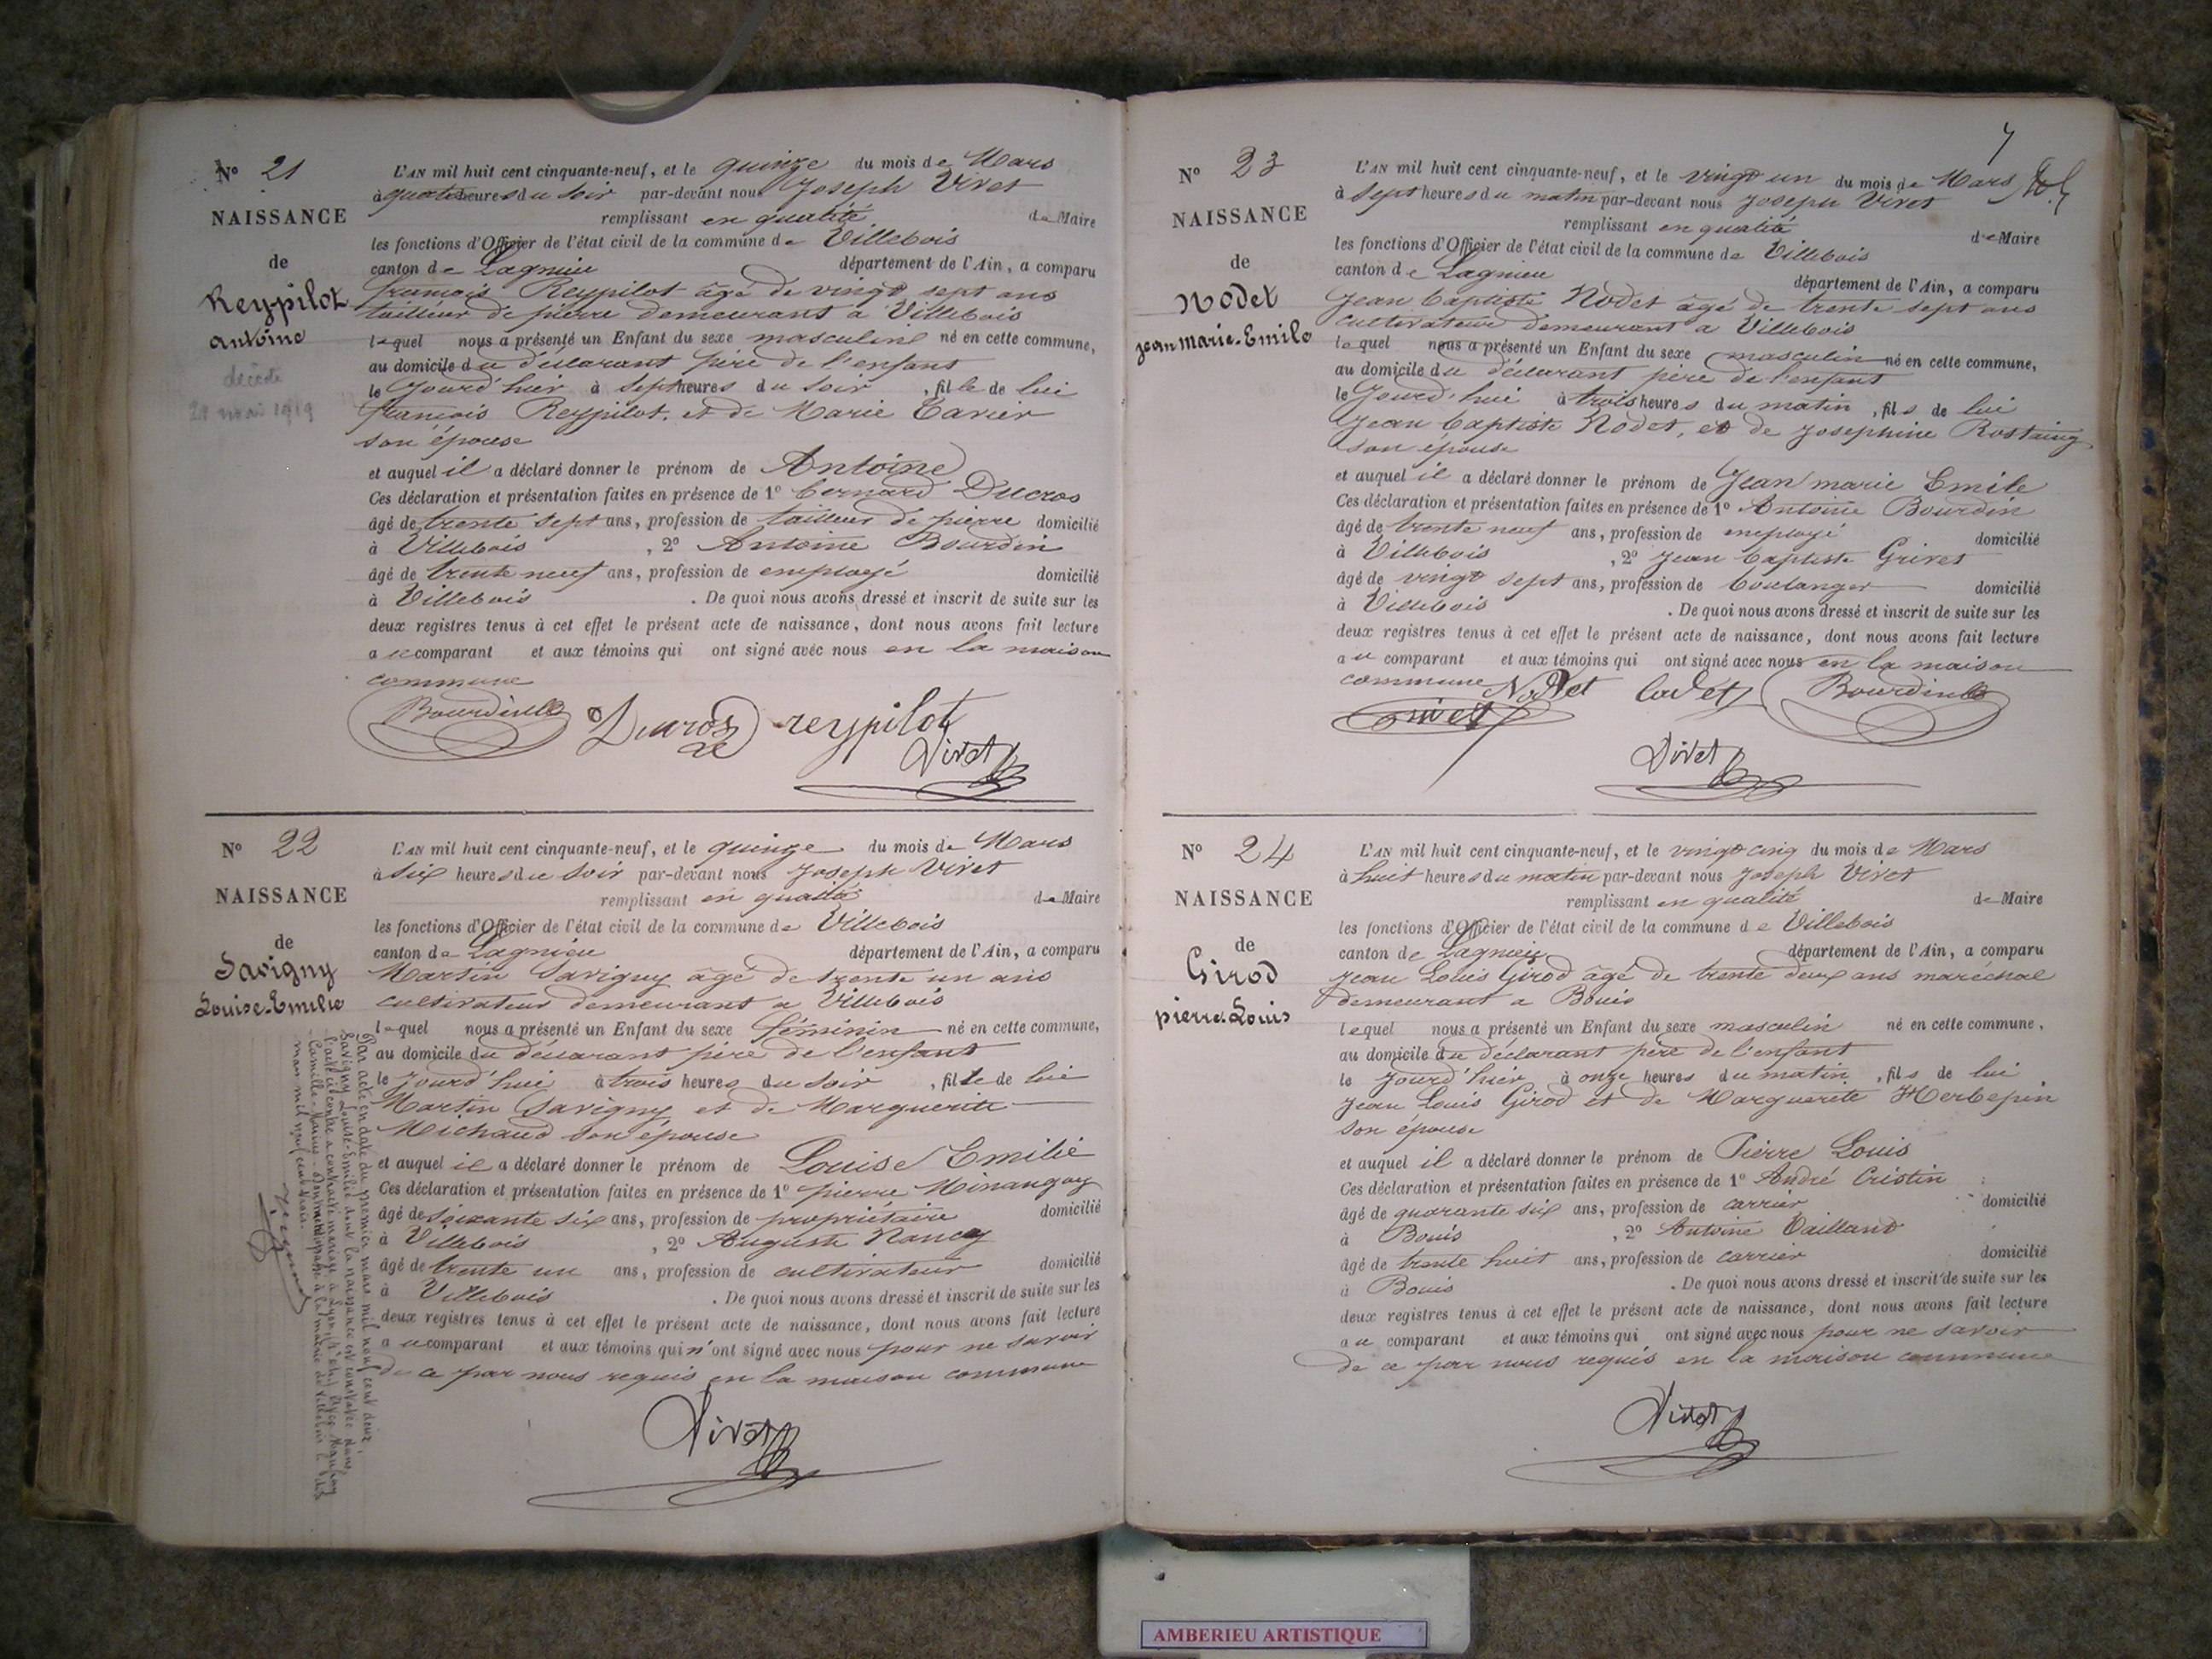 N° 21
NAISSANCE
de
Reypilot
Antoine
décédé
21 mai 1919
L'AN mil huit cent cinquante-neuf, et le quinze du mois de Mars
à quatre heures du soir par-devant nous Joseph Vivet
remplissant en qualité de Maire
les fonctions d'Officier de l'état civil de la commune de Villebois
canton de Lagnieu département de l'Ain, a comparu
francois Reypilot âgé de vingt sept ans
tailleur de pierre demeurant a Villebois
lequel nous a présenté un Enfant du sexe masculin né en cette commune,
au domicile du déclarant père de l'enfant
le Jourd'hier à sept heures du soir , fils de lui
francois Reypilot, et de Marie Tavier
son épouse
et auquel il a déclaré donner le prénom de Antoine
Ces déclaration et présentation faites en présence de 1° bernard Ducros
âgé de trente sept ans, profession de tailleur de pierre domicilié
à Villebois , 2° Antoine Bourdin
âgé de trente neuf ans, profession de employé domicilié
à Villebois . De quoi nous avons dressé et inscrit de suite sur les
deux registres tenus à cet effet le présent acte de naissance, dont nous avons fait lecture
au comparant et aux témoins qui ont signé avec nous en la maison
commune
Bourdin Ducros reypilot
Vivet
N° 22
NAISSANCE
de
Savigny
Louise-Emilie
L'AN mil huit cent cinquante-neuf, et le quinze du mois de Mars
à six heures du soir par-devant nous Joseph Vivet
remplissant en qualité de Maire
les fonctions d'Officier de l'état civil de la commune de Villebois
canton de Lagnieu département de l'Ain, a comparu
Martin Savigny âgé de trente un ans
cultivateur demeurant a Villebois
lequel nous a présenté un Enfant du sexe féminin né en cette commune,
au domicile du déclarant père de l'enfant
le Jourd'hui à trois heures du soir , fille de lui
Martin Savigny et de Marguerite
Michaud son épouse
et auquel il a déclaré donner le prénom de Louise Emilie
Ces déclaration et présentation faites en présence de 1° pierre Minangoy
âgé de soixante six ans, profession de propriétaire domicilié
à Villebois , 2° Auguste Nancy
âgé de trente un ans, profession de cultivateur domicilié
à Villebois . De quoi nous avons dressé et inscrit de suite sur les
deux registres tenus à cet effet le présent acte de naissance, dont nous avons fait lecture
au comparant et aux témoins qui n'ont signé avec nous pour ne savoir
de ce par nous requis en la maison commune
Vivet
Par acte en date du premier mars mil neuf cent deux,
Savigny Louise-Emilie dont la naissance est constatée dans
l'acte ci-contre a contracté mariage à Lyon avec
Camille-Marius mairie de Villebois le
mars mil neuf cent
7
N° 23
NAISSANCE
de
Nodet
jean marie-Emile
L'AN mil huit cent cinquante-neuf, et le vingt un du mois de Mars
à sept heures du matin par-devant nous Joseph Vivet
remplissant en qualité de Maire
les fonctions d'Officier de l'état civil de la commune de Villebois
canton de Lagnieu département de l'Ain, a comparu
Jean baptiste Nodet âgé de trente sept ans
cultivateur demeurant a Villebois
lequel nous a présenté un Enfant du sexe masculin né en cette commune,
au domicile du déclarant père de l'enfant
le Jourd'hui à trois heures du matin , fils de lui
Jean baptiste Nodet, et de Josephine Rostaing
son épouse
et auquel il a déclaré donner le prénom de Jean marie Emile
Ces déclaration et présentation faites en présence de 1° Antoine Bourdin
âgé de trente neuf ans, profession de employé domicilié
à Villebois , 2° Jean baptiste Grivet
âgé de vingt sept ans, profession de boulanger domicilié
à Villebois . De quoi nous avons dressé et inscrit de suite sur les
deux registres tenus à cet effet le présent acte de naissance, dont nous avons fait lecture
au comparant et aux témoins qui ont signé avec nous en la maison
commune Nodet cadet Bourdin
Grivet
Vivet
N° 24
NAISSANCE
de
Girod
pierre-Louis
L'AN mil huit cent cinquante-neuf, et le vingt cinq du mois de Mars
à huit heures du matin par-devant nous Joseph Vivet
remplissant en qualité de Maire
les fonctions d'Officier de l'état civil de la commune de Villebois
canton de Lagnieu département de l'Ain, a comparu
Jean Louis Girod âgé de trente deux ans maréchal
demeurant a Bouis
lequel nous a présenté un Enfant du sexe masculin né en cette commune,
au domicile du déclarant père de l'enfant
le Jourd'hier à onze heures du matin , fils de lui
Jean Louis Girod et de Marguerite Herbepin
son épouse
et auquel il a déclaré donner le prénom de Pierre Louis
Ces déclaration et présentation faites en présence de 1° André Cristin
âgé de quarante six ans, profession de carrier domicilié
à Bouis , 2° Antoine Tailland
âgé de trente huit ans, profession de carrier domicilié
à Bouis . De quoi nous avons dressé et inscrit de suite sur les
deux registres tenus à cet effet le présent acte de naissance, dont nous avons fait lecture
au comparant et aux témoins qui ont signé avec nous pour ne savoir
de ce par nous requis en la maison commune
Vivet
AMBERIEU ARTISTIQUE